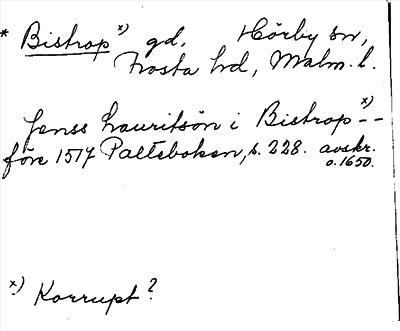 * Bistrop x) gd, Hörby sn,
Frosta hd, Malm. l.
Jenss Lauritsøn i Bistrop x) --
före 1517 Palteboken, s. 228. avskr.
o. 1650.
x) Korrupt?